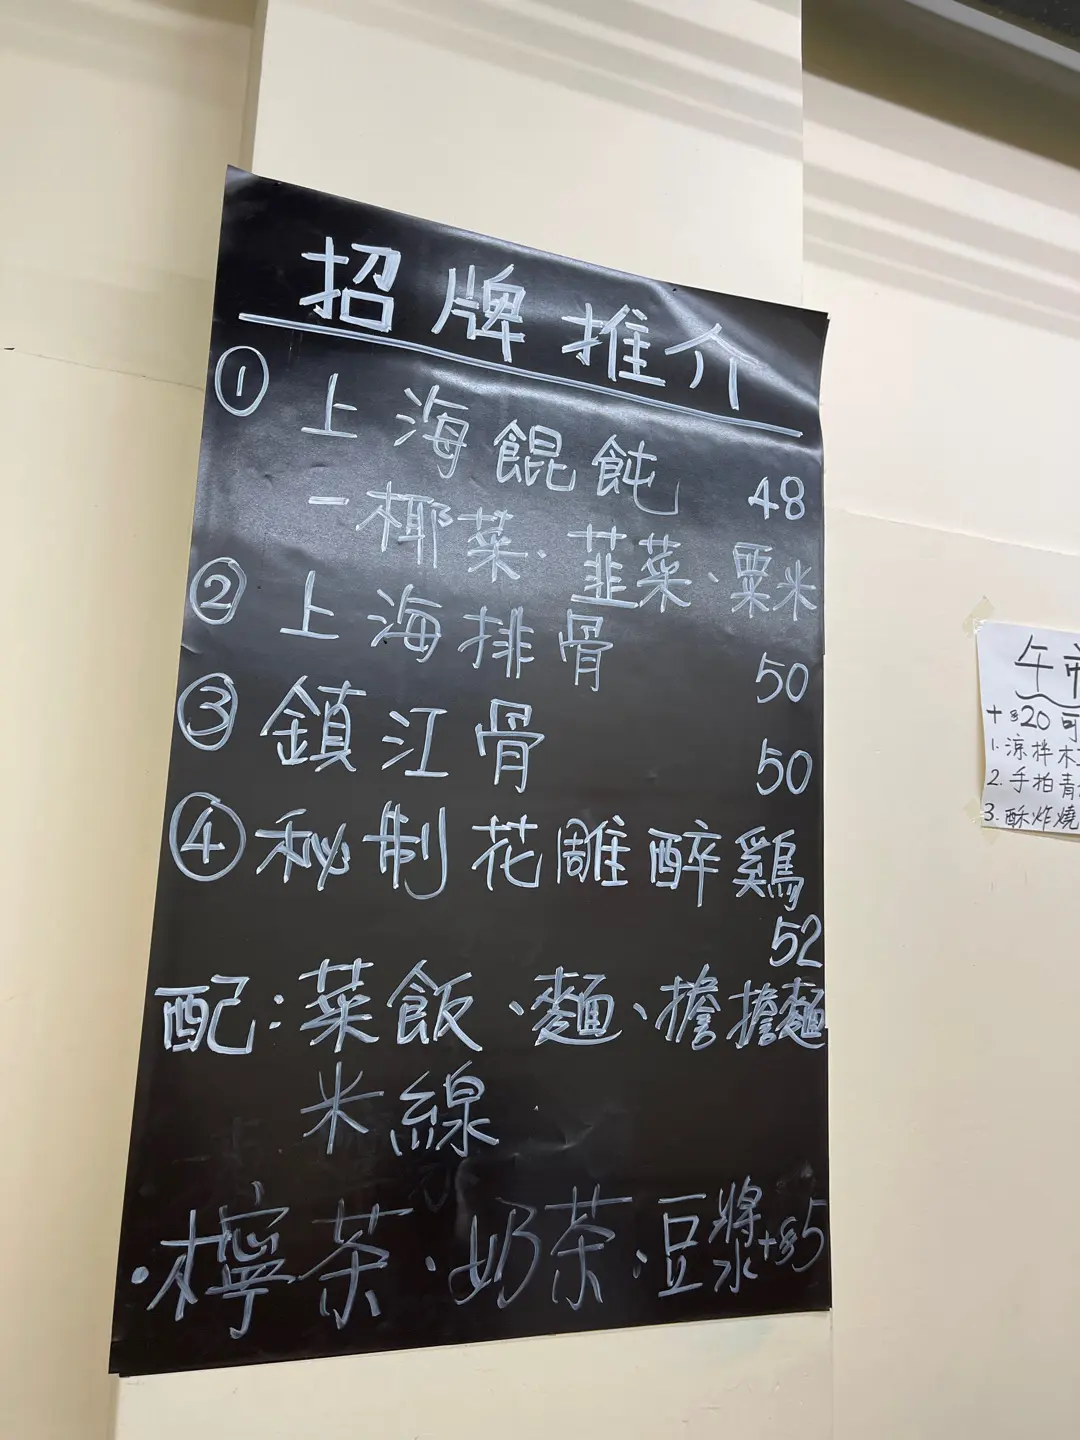 招牌推介
① 上海餛飩 48
-椰菜.韮菜、粟米
② 上海排骨 50
③ 鎮江骨 50
④ 秘制花雕醉鷄
52
配:菜飯、麵、擔擔麵
米線
·檸茶·奶茶·豆漿+$5
午市
+$20可
1.涼拌木
2.手拍青
3.酥炸燒